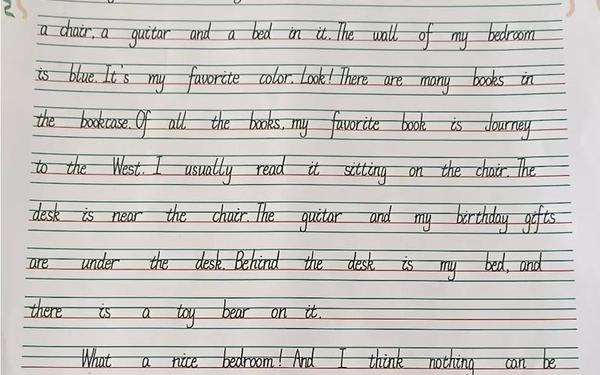 a chair, a guitar and a bed in it. The wall of my bedroom
is blue. It's my favorite color. Look! There are many books in
the bookcase. Of all the books, my favorite book is Journey
to the West. I usually read it sitting on the chair. The
desk is near the chair. The guitar and my birthday gifts
are under the desk. Behind the desk is my bed, and
there is a toy bear on it.
What a nice bedroom! And I think nothing can be